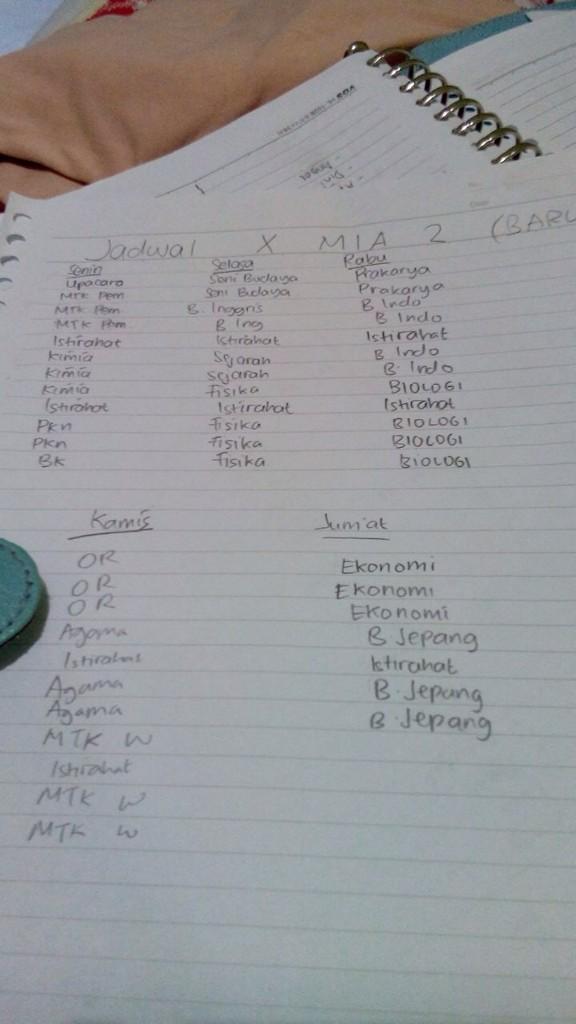 Jadwal X MIA 2 (BARU
Senin Selasa Rabu
Upacara Seni Budaya Prakarya
MTK Pem Seni Budaya Prakarya
MTK Pem B. Inggris B Indo
MTK Pem B Ing B Indo
Istirahat Istirahat Istirahat
Kimia Sejarah B Indo
Kimia Sejarah B. Indo
Kimia Fisika BIOLOGI
Istirahat Istirahat Istirahat
PKn Fisika BIOLOGI
PKn Fisika BIOLOGI
BK Fisika BIOLOGI
Kamis Jum'at
OR Ekonomi
OR Ekonomi
OR Ekonomi
Agama B Jepang
Istirahat Istirahat
Agama B. Jepang
Agama B. Jepang
MTK W
Istirahat
MTK W
MTK W